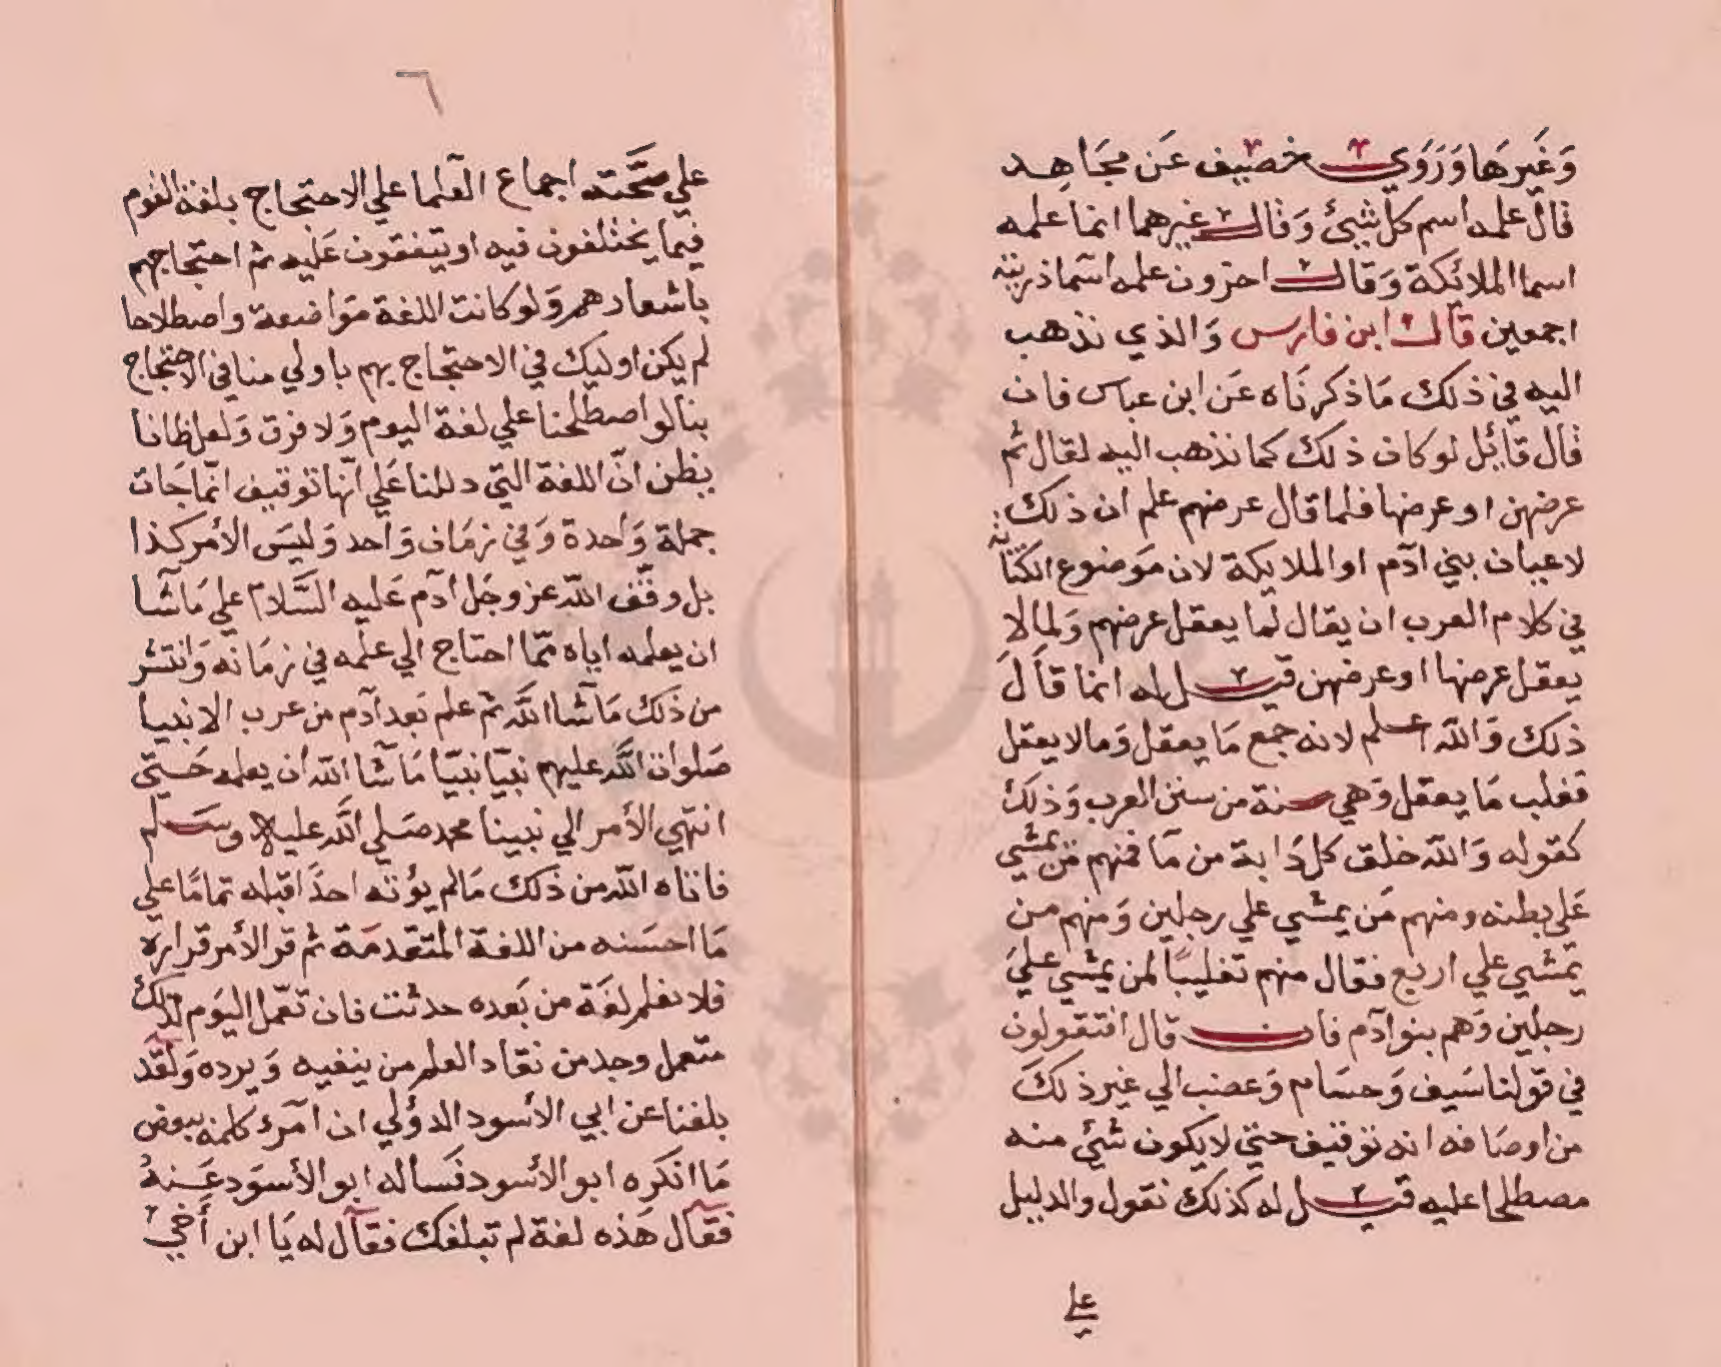 وَغَيرهَا وَرَوَي خصيف عَن مجَاهِد
قال علمه اسم كل شيئ وَقال غيرهما انما علمه
اسما الملائكة وَقال اخرون علمه اسما ذريته
اجمعين قال ابن فارس وَالذي نذهب
اليه في ذلك مَا ذكرنَاه عَن ابن عباس فان
قال قَائل لو كان ذلك كما نذهب اليه لقال ثم
عرضهن او عرضها فلما قال عرضهم علم ان ذلك
لاعيان بني آدم او الملايكة لان مَوضوع الكناية
في كلام العرب ان يقال لما يعقل عرضهم وَلما لا
يعقل عرضها او عرضهن قيل له انما قَالَ
ذلك وَالله اعلم لانه جمع مَا يعقل وَمالا يعقل
فغلب مَا يعقل وَهي سنة من سنن العرب وَذلك
كقوله وَالله خلق كل دَابة من مَا فمنهم مَن يمشي
عَلي بطنه ومنهم مَن يمشي علي رجلين وَمنهم من
يمشي علي اربع فقال منهم تغليبًا لمن يمشي علي
رجلين وَهم بنوا آدم فان قال افتقولون
في قولنا سَيف وَحسَام وَعضب الي غير ذلكَ
من اوصَافه انه توقيف حتي لا يكون شئ منه
مصطلحا عليه قيل له كذلك نقول والدليل
علي
٦
علي صحّته اجماع العلما علي الاحتجاج بلغة القوم
فيما يختلفون فيه او يتفقون عَليه ثم احتجاجهم
باشعارهم وَلو كانت اللغة مَوَاضعة واصطلاحا
لم يكن اوليك في الاحتجاج بهم باولي منا في الاحتجاج
بنا لو اصطلحنا علي لغة اليوم وَلا فرق وَلعل ظانا
يظن انّ اللغة التي دللنا عَلي انّها توقيف انّما جَات
جملة وَاحدة وَفي زمَان وَاحد وَليسَ الأمر كذا
بل وقّف الله عز وجَل آدم عَليه السَّلام علي مَا شا
ان يعلمه اياه ممّا احتاج الي علمه في زمَانه وَانتشر
من ذلك مَا شا الله ثم علم بَعد آدم من عرب الانبيا
صَلوات الله عليهم نبيّا نبيّا مَا شا الله ان يعلمه حَتي
انتهي الأمر الي نبينا محمد صَلي الله عليه وسَلم
فاتاه الله من ذلك مَا لم يؤته احدًا قبله تمامًا علي
مَا احسَنه من اللغة المتقدمَة ثم قر الأمر قراره
فلا نعلم لغَة من بَعده حدثت فان تعمّل اليَوم لذلك
متعمل وجد من نقاد العلم من ينفيه وَيرده وَلقد
بلغنا عن ابي الأسود الدؤلي ان امرء كلمه ببعض
مَا انكره ابو الأسود فَساله ابو الأسوَد عَنهُ
فقال هَذه لغة لم تبلغك فقال له يَا ابن أخي